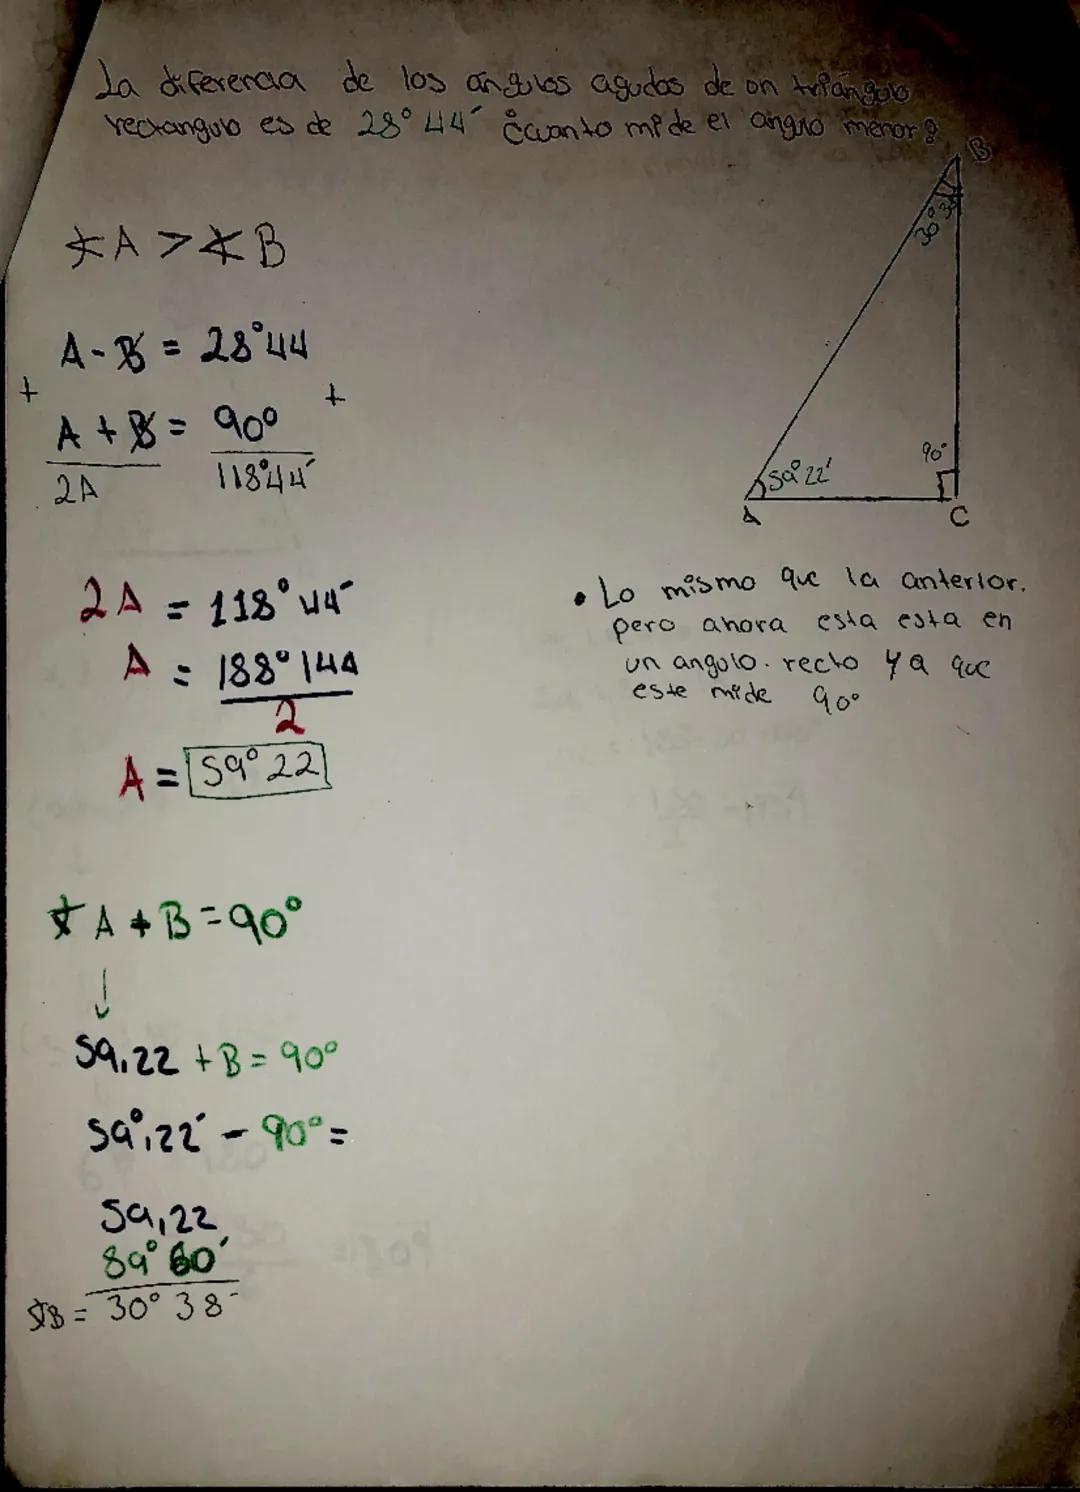 La diferencia de los angulos agudos de un triángulo
rectangulo es de 28° 44´ ¿cuanto mide el angulo menor?
∢A > ∢B
A - B = 28°44
+ +
A + B = 90°
2A 118°44´
2A = 118° 44´
A = 188° 144
2
A = 59° 22
∢ A + B = 90°
↓
59,22 + B = 90°
59°,22´ - 90° =
59,22
89° 60´
∢B = 30° 38´
B
30° 38
90°
59° 22'
A
C
• Lo mismo que la anterior.
pero ahora esta esta en
un angulo. recto ya que
este mide 90°